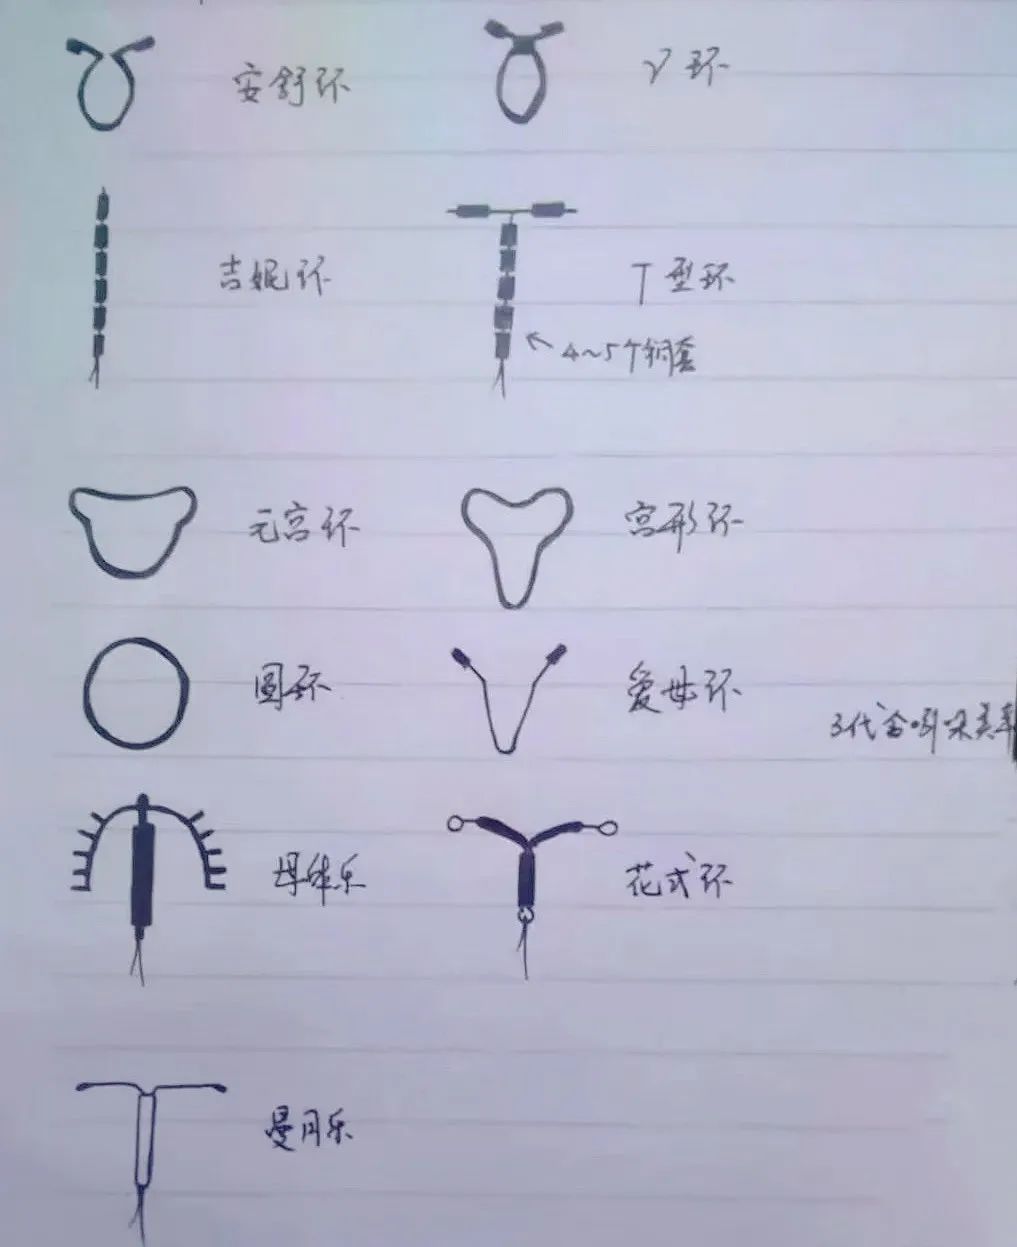 安舒环
γ环
吉妮环
T型环
4~5个铜套
元宫环
宫形环
圆环
爱母环
3代含吲哚美辛
母体乐
花式环
曼月乐